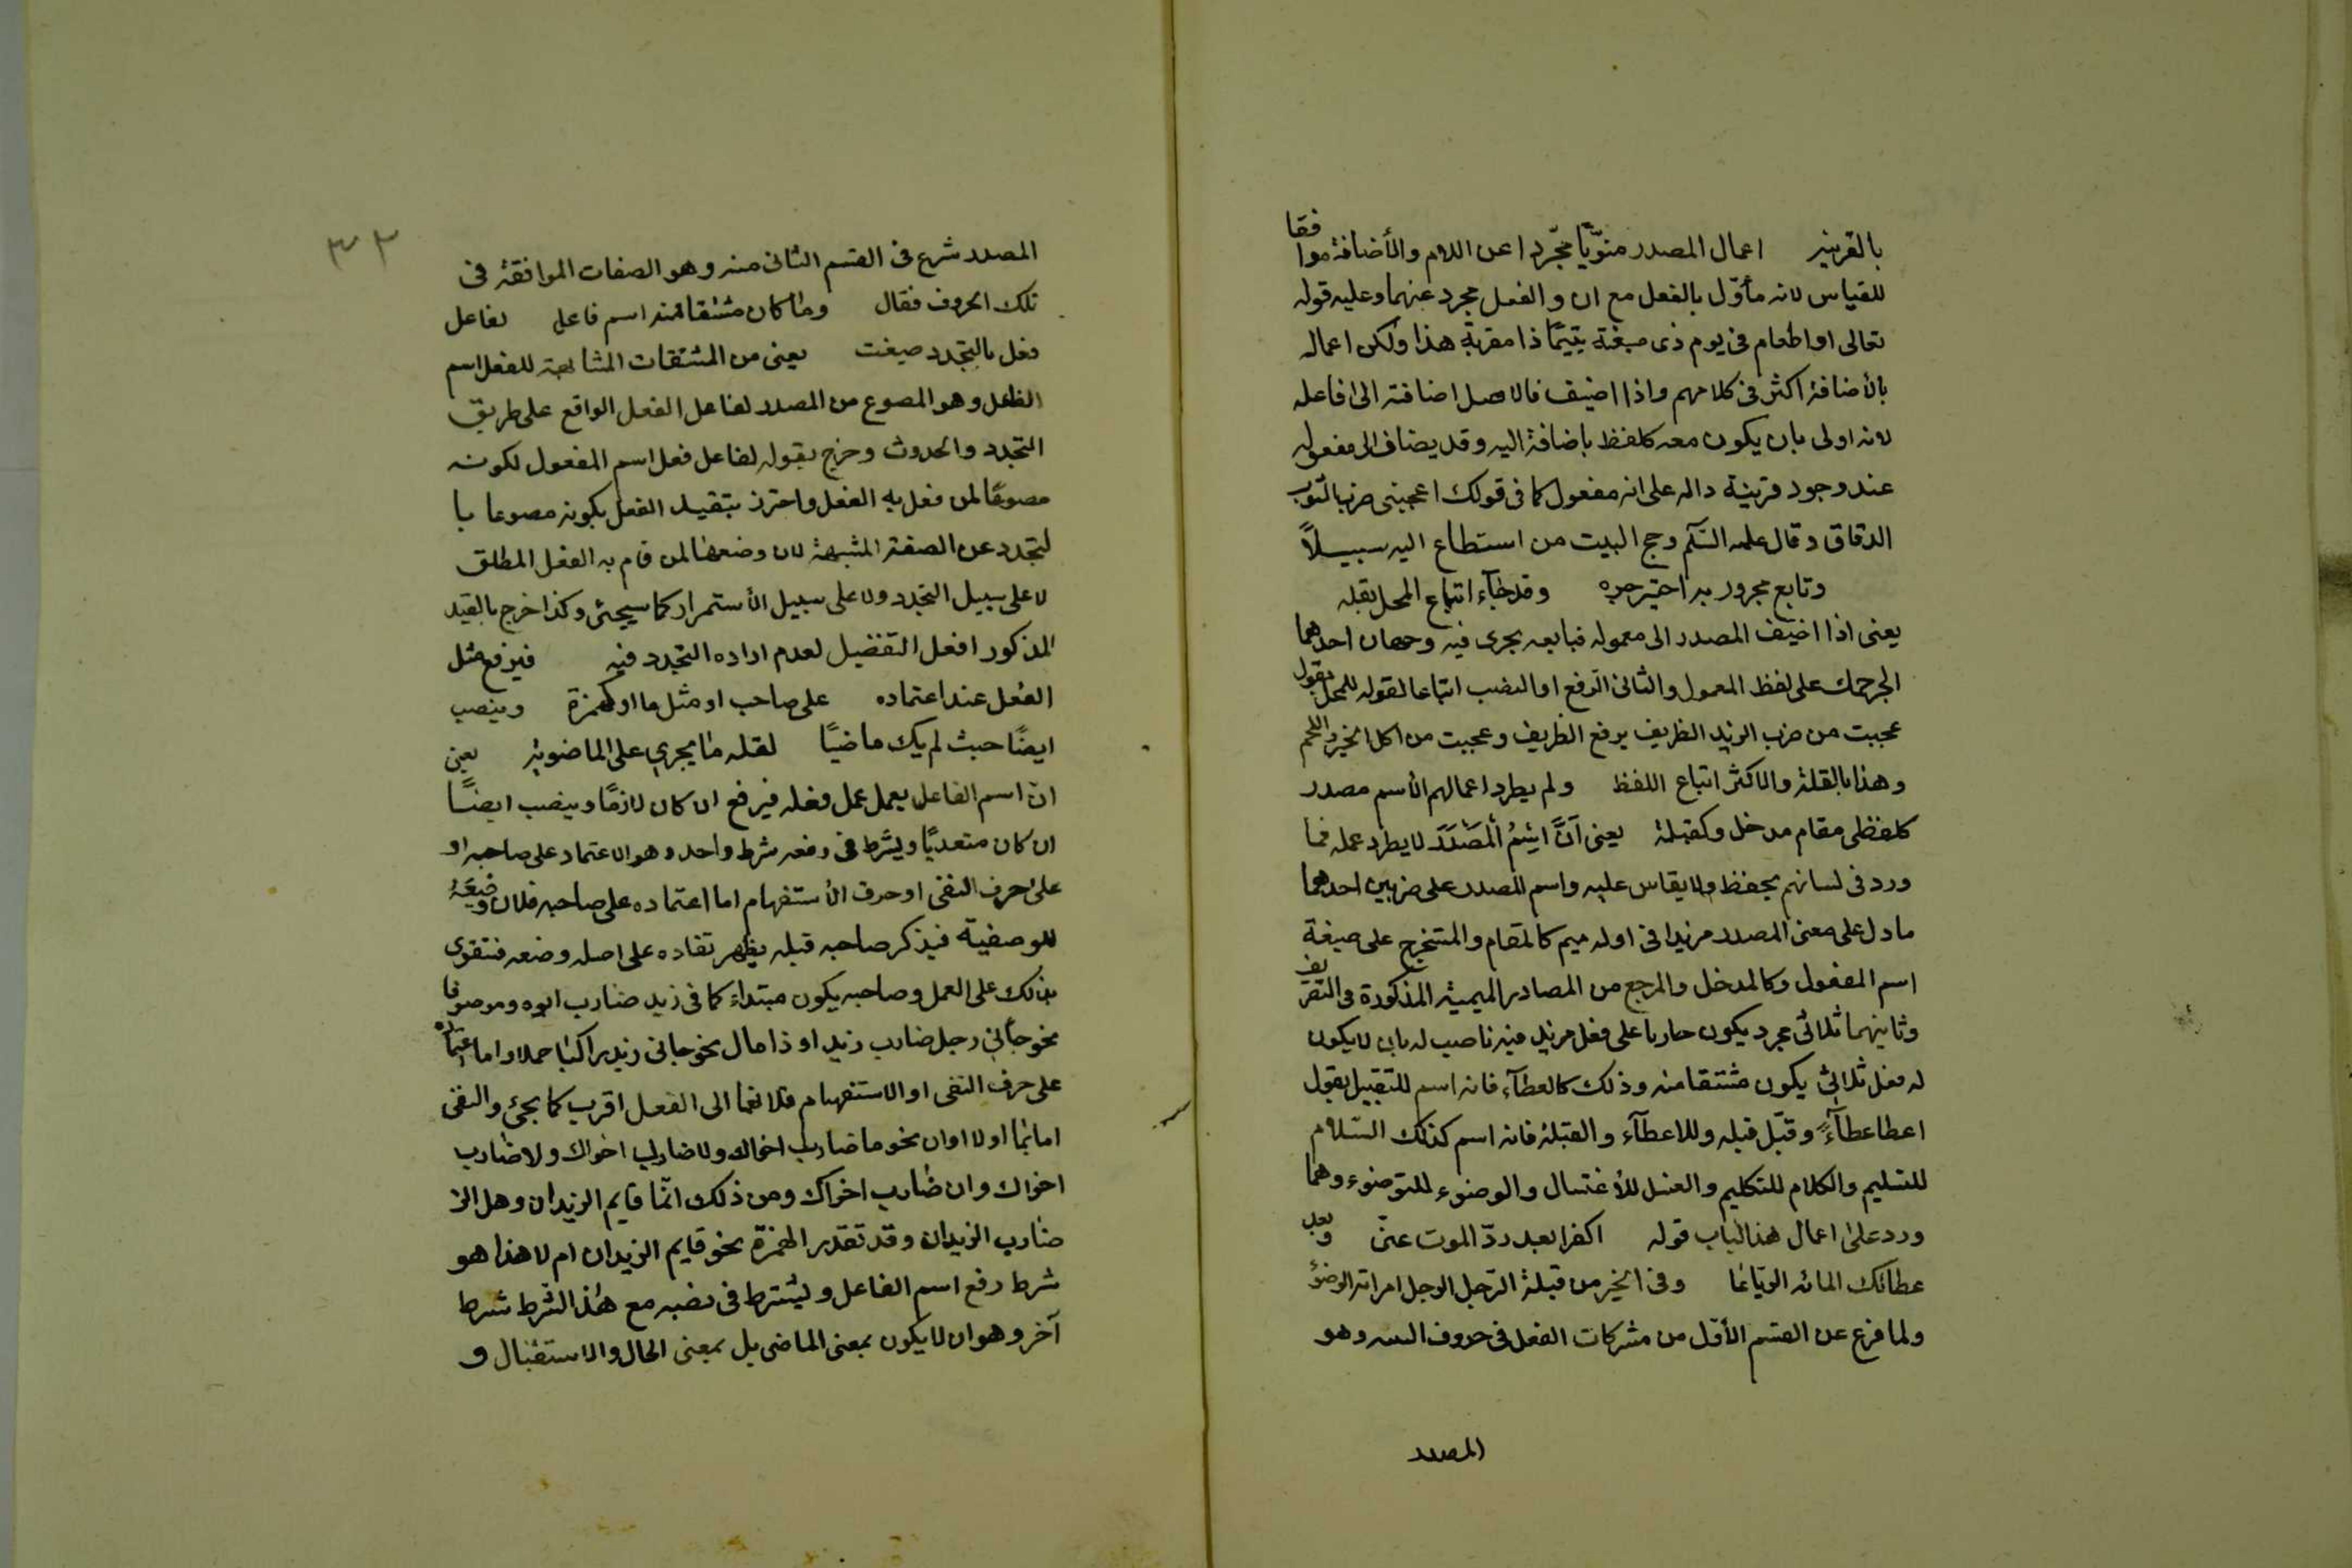 بالقرينه اعمال المصدر منوّنا مجّردا عن اللام والأضافة موافقا
للقياس لانه مأوّل بالفعل مع ان والفعل مجرد عنهما وعليه قوله
تعالى او اطعام فى يوم ذى مسغبة يتيمًا ذا مقربة هذا ولكن اعماله
بالأضافة اكثر فى كلامهم واذا اضيف فالاصل اضافته الى فاعله
لانه اولى بان يكون معه كلفظ باضافة اليه وقد يضاف الى مفعوله
عند وجود قرينة داله على انه مفعول كما فى قولك اعجبنى ضرب الثوب
الدقاق وقال عليه السّلم وحج البيت من استطاع اليه سبيلاً
وتابع مجرور به اختير جره وقد جآء اتباع المحل بقله
يعنى اذا اضيف المصدر الى معموله فتابعه يجرى فيه وجهان احدهما
الجر حملا على لفظ المعمول والثانى الرفع او النصب اتباعا لقوله للمحل تقول
عجبت من ضرب الزيد الظريف برفع الظريف وعجبت من اكل الخبز واللحم
وهذا بالقلة والاكثر اتباع اللفظ ولم يطرد اعمالهم الأسم مصدر
كلفظى مقام مدخل وكقبلة يعنى اَنَّ اسْمُ الْمَصْدَرَ لا يطرد عمله فما
ورد فى لسانهم يحفظ ولا يقاس عليه واسم المصدر على ضربين احدهما
ما دل على معنى المصدر مزيدا فى اوله ميم كالمقام والمستخرج على صيغة
اسم المفعول وكالمدخل والمرجع من المصادر الميمية المذكورة فى التصريف
وثانيهما ثلاثى مجرد يكون جاريا على فعل مزيد فيه ناصب له بان لا يكون
له فعل ثلاثى يكون مشتقا منه وذلك كالعطآء فانه اسم للتقبيل يقول
اعطا عطآءً وقبّل قبله وللاعطآء والقبلة فانه اسم كذلك السّلام
للتسليم والكلام للتكليم والغسل للأغتسال والوضوء للتوضوء وهما
ورد على اعمال هذا الباب قوله اكفرا بعد ردّ الموت عنّى وبعد
عطائك المائه الرّتاعا وفى الخبر من قبلة الرّجل الرجل امراته الوضوء
ولما فرغ عن القسم الأوّل من مشركات الفعل فى حروف الـ وهو
المصدر
٣٢
المصدر شرع فى القسم الثانى منه وهو الصفات الموافقة فى
تلك الحروف فقال وما كان مشتقا منه اسم فاعل لفاعل
فعل بالتجدد صيغت يعنى من المشتقات المشابهة للفعل اسم
الفاعل وهو المصوع من المصدر لفاعل الفعل الواقع على طريق
التجدد والحدوث وخرج بقوله لفاعل فعل اسم المفعول لكونه
مصوعًا لمن فعل به الفعل واحترز بتقييد الفعل بكونه مصوعا با
لتجدد عن الصفة المشبهة لان وضعها لمن قام به الفعل المطلق
لا على سبيل التجدد ولا على سبيل الأستمرار كما سيجئ وكذا خرج بالقيد
المذكور افعل التفضيل لعدم اراده التجدد فيه فيرفع مثل
الفعل عند اعتماده على صاحب او مثل ما او كهمزة وينصب
ايضًا حيث لم يك ماضيًا لقله ما يجرى على الماضويه يعنى
انّ اسم الفاعل يعمل عمل فعله فيرفع ان كان لازمًا وينصب ايضًا
ان كان متعديًا ويشرط فى رفعه شرط واحد وهو الاعتماد على صاحبه او
على حرف النفى او حرف الأستفهام اما اعتماده على صاحبه فلان وضعه
للوصفية فيذكر صاحبه قبله يظهر تقاده على اصله وضعه فتقوى
بذلك على العمل وصاحبه يكون مبتداء كما فى زيد ضارب ابوه وموصوفا
نحو جأنى رجل ضارب زيد او ذا حال نحو جانى زيد راكبا حملا واما اعتماده
على حرف النفى او الاستفهام فلانهما الى الفعل اقرب كما يجئ والنفى
اما بما او لا او ان نحو ما ضارب اخواك ولا ضارب اخواك ولا ضارب
اخواك وان ضارب اخواك ومن ذلك انّما قايم الزيدان وهل الز
ضارب الزيدان وقد تقدر الهمزة نحو قايم الزيدان ام لا هذا هو
شرط رفع اسم الفاعل ويشترط فى نصبه مع هذا الشرط شرط
آخر وهو ان لا يكون بمعنى الماضى بل بمعنى الحال والاستقبال و